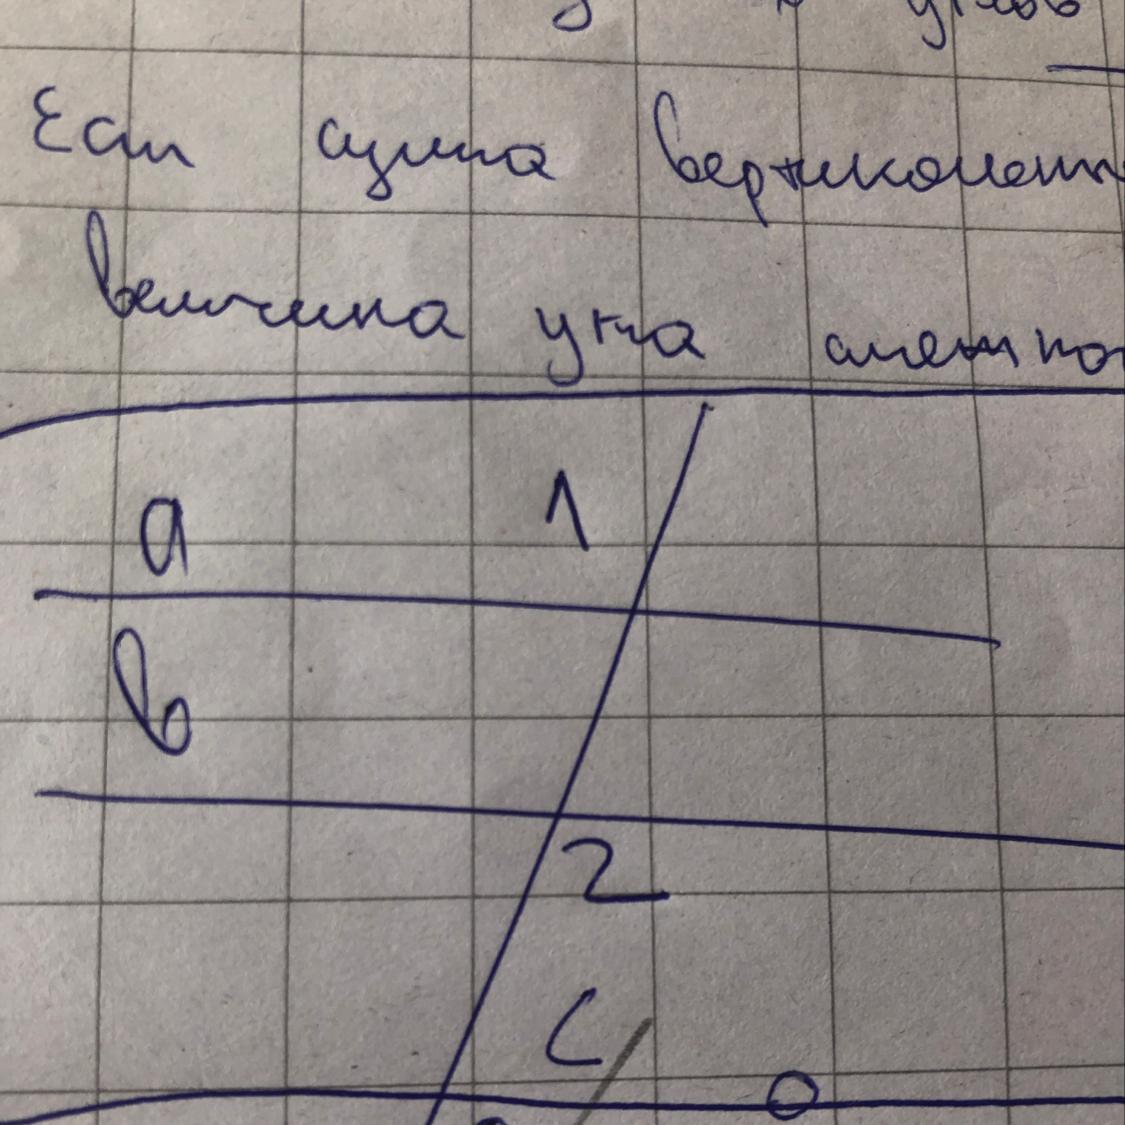 углов
Если сумма вертикальн
величина угла смежно
a 1
b
2
c